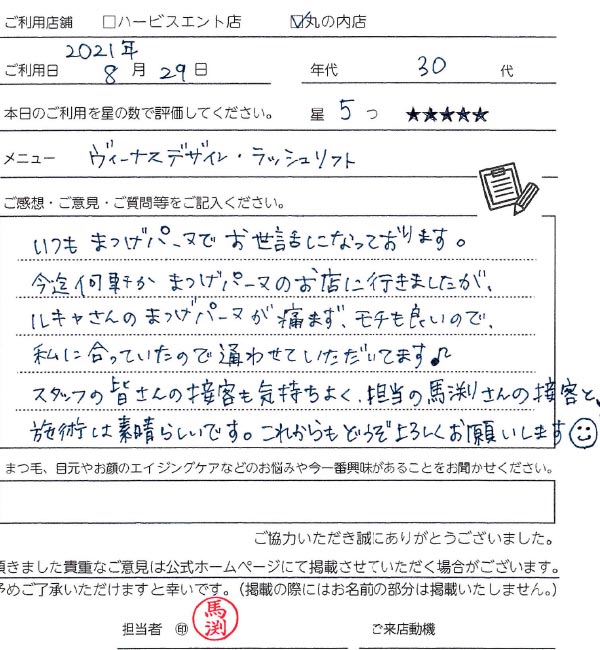 ご利用店舗 □ハービスエント店 ☑丸の内店
2021年
ご利用日 8月29日 年代 30代
本日のご利用を星の数で評価してください。 星 5つ ★★★★★
メニュー ヴィーナスデザイン・ラッシュリフト
ご感想・ご意見・ご質問等をご記入ください。
いつも まつげパーマで お世話になっております。
今迄何軒か まつげパーマのお店に行きましたが、
ルキャさんの まつげパーマが 痛まず、モチも良いので、
私に合っていたので通わせていただいてます♪
スタッフの皆さんの接客も気持ちよく、担当の馬渕さんの接客と、
施術は素晴らしいです。これからもどうぞよろしくお願いします☺
まつ毛、目元やお顔のエイジングケアなどのお悩みや今一番興味があることをお聞かせください。
ご協力いただき誠にありがとうございました。
頂きました貴重なご意見は公式ホームページにて掲載させていただく場合がございます。
予めご了承いただけますと幸いです。(掲載の際にはお名前の部分は掲載いたしません。)
担当者 ㊞ 馬渕 ご来店動機